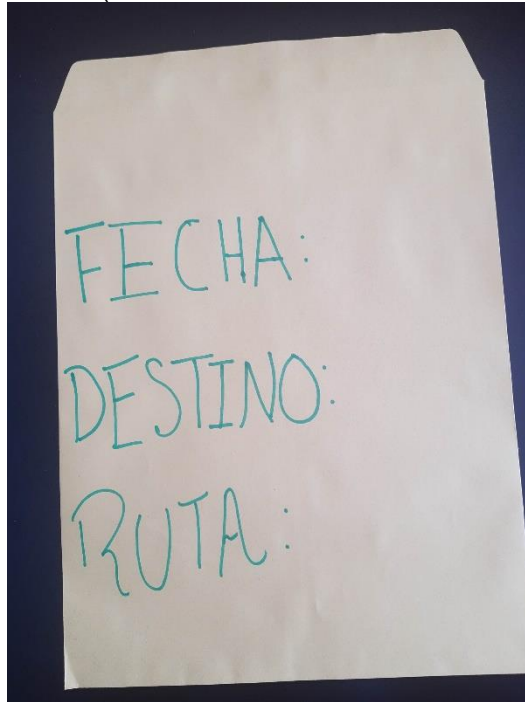 FECHA:
DESTINO:
RUTA: